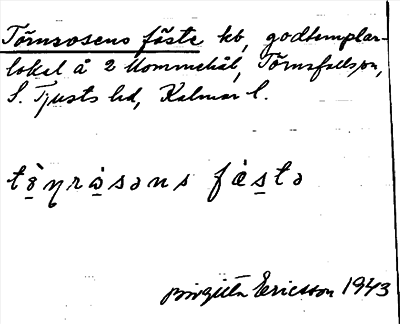 Törnrosens fäste kb, godtemplar-
lokal å 2 Mommehål, Törnsfallssn,
S. Tjusts hd, Kalmar l.
tò̤ṇrò̤səns fɛ́stə
Birgitta Ericsson 1943